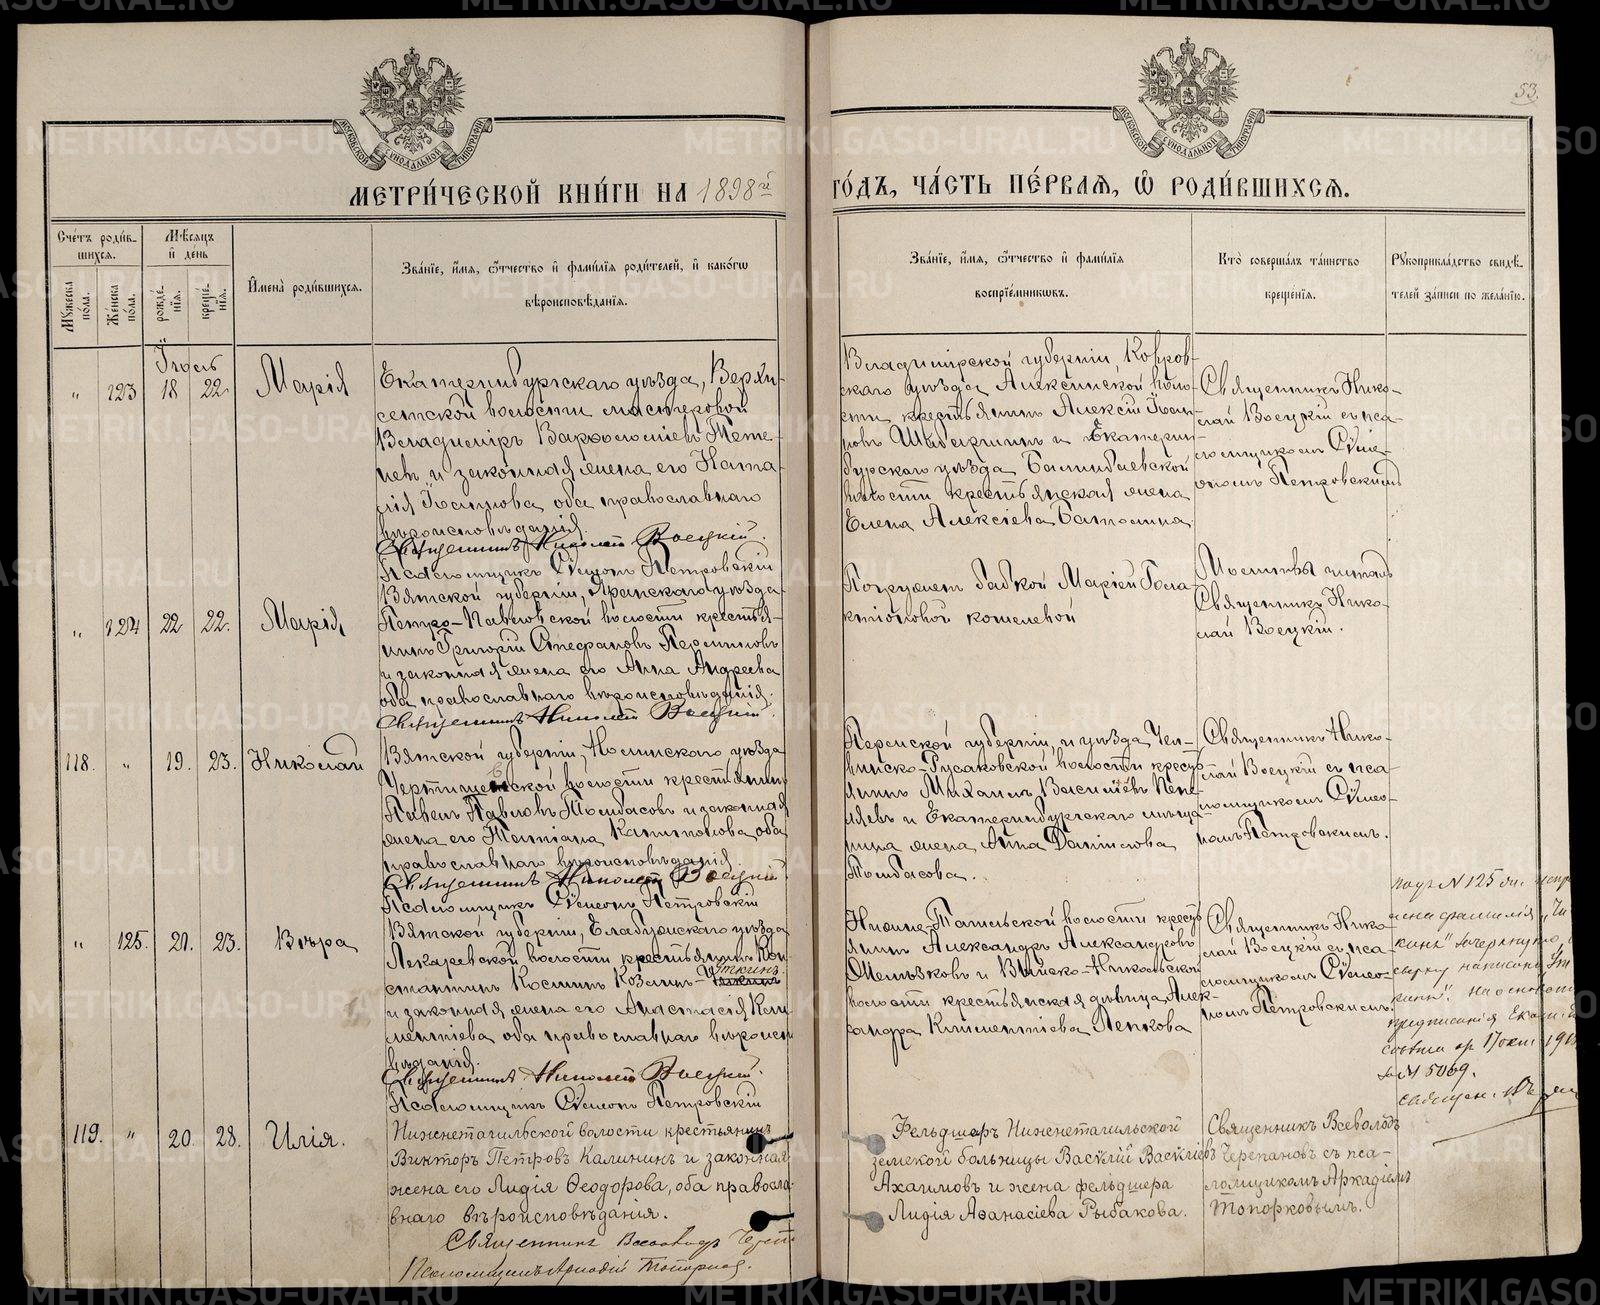 53.
МОСКОВСКОЙ СѴНОДАЛЬНОЙ ТИПОГРАФІИ
МОСКОВСКОЙ СѴНОДАЛЬНОЙ ТИПОГРАФІИ
МЕТРИ́ЧЕСКОЙ КНИ́ГИ НА 1898й
ГО́ДЪ, ЧА́СТЬ ПЕ́РВАЯ, Ѽ РОДИ́ВШИХСЯ.
Сче́тъ роди́в-
шихся.
Мꙋ́жеска по́ла.
Же́нска по́ла.
Мѣ́сяцъ
и҆ де́нь
рожде́-
нїя.
креще́-
нїя.
И҆мена̀ роди́вшихся.
Зва́нїе, и҆́мя, ѻ҆́тчество и҆ фами́лїя роди́телей, и҆ како́гѡ
вѣроисповѣ́данїя.
Зва́нїе, и҆́мя, ѻ҆́тчество и҆ фами́лїя
воспрїе́мникѡвъ.
Кто̀ соверша́лъ та́инство
креще́нїя.
Рꙋкоприкла́дство свидѣ́-
телей за́писи по жела́нїю.
Іюль
„ 123 18 22 Марія
Екатеринбургскаго уѣзда, Верхи-
сетской волости мастеровой
Владиміръ Варѳоломіевъ Пете-
левъ и законная жена его Ната-
лія Іоаннова оба православнаго
вѣроисповѣданія.
Священникъ Николай Воецкій.
Псаломщикъ Сѵмеонъ Петровскій
Владимірской губерніи, Ковров-
скаго уѣзда Алексинской воло-
сти крестьянинъ Алексій Іоан-
новъ Шабекринъ и Екатерин-
бургскаго уѣзда Билимбаевской
волости крестьянская жена
Елена Алексіева
Священникъ Нико-
лай Воецкій съ пса-
ломщикомъ Сѵме-
ономъ Петровскимъ
„ 124 22 22. Марія
Вятской губерніи, Яранскаго уѣзда
Петро-Павловской волости крестья-
нинъ Григорій Стефановъ Перминовъ
и законная жена его Анна Андреева
оба православнаго вѣроисповѣданія.
Священникъ Николай Воецкій.
Погружена бабкой Маріей Гала-
ктіоновой Кошелевой
Молитвы читалъ
Священникъ Нико-
лай Воецкій.
118. „ 19. 23. Николай
Вятской губерніи, Нолинскаго уѣзда
волости крестьянинъ
Павелъ Павловъ Толмбасовъ и законная
жена его Татіана Капитонова оба
православнаго вѣроисповѣданія.
Священникъ Николай Воецкій
Псаломщикъ Сѵмеонъ Петровскій
Пермской губерніи, и уѣзда
Русаковской волости кресть-
янинъ Михаилъ Васильевъ Пепе-
ляевъ и Екатеринбургскаго мѣща-
нина жена Анна Данилова
Толмбасова.
Священникъ Нико-
лай Воецкій съ пса-
ломщикомъ Сѵмео-
номъ Петровскимъ.
„ 125. 21. 23. Вѣра
Вятской губерніи, Елабужскаго уѣзда
Лекаревской волости крестьянинъ Кон-
стантинъ Косминъ Козминъ-Уткинъ
и законная жена его Анастасія Кли-
ментіева оба православнаго вѣроиспо-
вѣданія.
Священникъ Николай Воецкій.
Псаломщикъ Сѵмеонъ Петровскій
Нижне-Тагильской волости кресть-
янинъ Александръ Александровъ
и Выйско-Никольской
волости крестьянская дѣвица Алек-
сандра Климентіева Лепкова
Священникъ Нико-
лай Воецкій съ пса-
ломщикомъ Сѵмео-
номъ Петровскимъ.
подъ N 125
фамилія „Чи-
кинъ" зачеркнуто,
сверху написано „Ут-
кинъ". На основаніи
предписанія
17 окт.
за N 5069.
119. „ 20. 28. Илія.
Нижнетагильской волости крестьянинъ
Викторъ Петровъ Калининъ и законная
жена его Лидія Ѳеодорова, оба правосла-
внаго вѣроисповѣданія.
Священникъ Всеволодъ
Псаломщикъ Аркадій
Фельдшеръ Нижнетагильской
земской больницы Василій Василіевъ
Ахаимовъ и жена фельдшера
Лидія Аѳанасіева Рыбакова.
Священникъ Всеволодъ
Черепановъ съ пса-
ломщикомъ Аркадіемъ
Топорковымъ.
METRIKI.GASO-URAL.RU